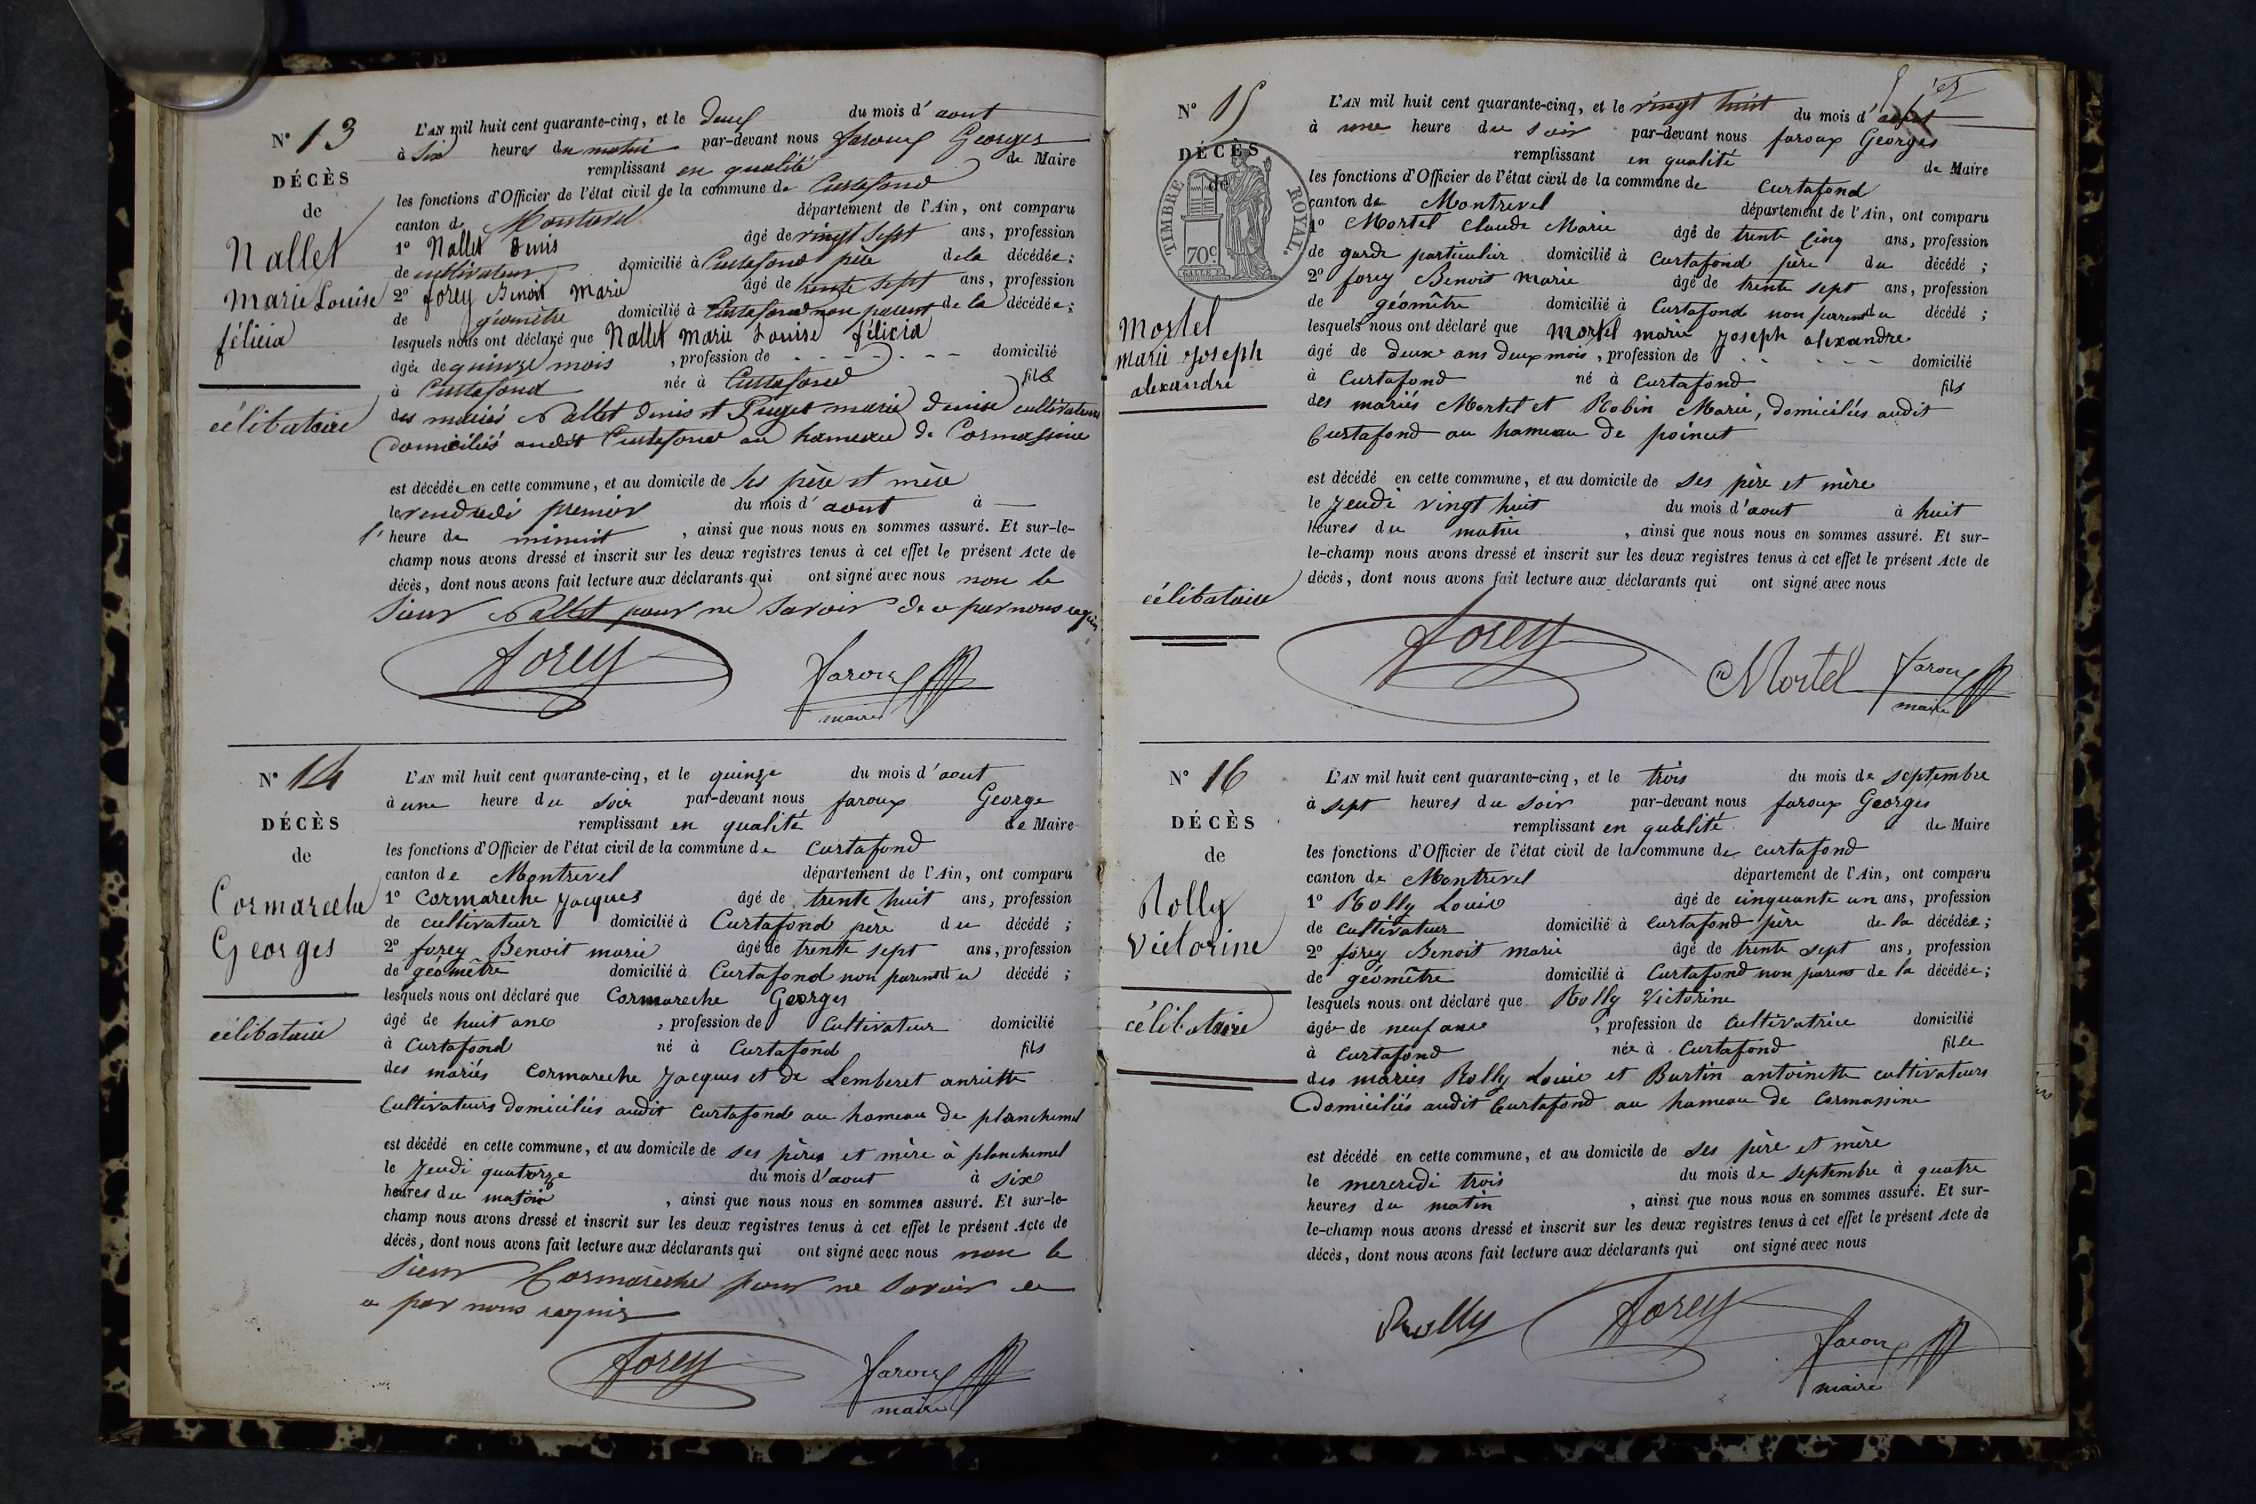 N° 13
DÉCÈS
de
Nallet
Marie Louise
félicia
célibataire
L'AN mil huit cent quarante-cinq, et le deux du mois d'aout
à six heures du matin par-devant nous faroux Georges
remplissant en qualité de Maire
les fonctions d'Officier de l'état civil de la commune de Curtafond
canton de Montrevel département de l'Ain, ont comparu
1° Nallet Denis âgé de vingt sept ans, profession
de cultivateur domicilié à Curtafond père de la décédée ;
2° forey Benoit Marie âgé de trente sept ans, profession
de géomètre domicilié à Curtafond non parent de la décédée ;
lesquels nous ont déclaré que Nallet Marie Louise félicia
âgée de quinze mois , profession de - - - - - - domicilié
à Curtafond née à Curtafond fille
des mariés Nallet Denis et Puget marie Denise cultivateurs
domiciliés audit Curtafond au hameau de Cormassine
est décédée en cette commune, et au domicile de ses père et mère
le vendredi premier du mois d'aout à —
l'heure de minuit , ainsi que nous nous en sommes assuré. Et sur-le-
champ nous avons dressé et inscrit sur les deux registres tenus à cet effet le présent Acte de
décès, dont nous avons fait lecture aux déclarants qui ont signé avec nous non le
sieur Nallet pour ne savoir de ce par nous requis
forey faroux
maire
N° 14
DÉCÈS
de
Cormareche
Georges
célibataire
L'AN mil huit cent quarante-cinq, et le quinze du mois d'aout
à une heure du soir par-devant nous faroux George
remplissant en qualité de Maire
les fonctions d'Officier de l'état civil de la commune de Curtafond
canton de Montrevel département de l'Ain, ont comparu
1° Cormareche Jacques âgé de trente huit ans, profession
de cultivateur domicilié à Curtafond père du décédé ;
2° forey Benoit marie âgé de trente sept ans, profession
de géomètre domicilié à Curtafond non parent du décédé ;
lesquels nous ont déclaré que Cormareche Georges
âgé de huit ans , profession de Cultivateur domicilié
à Curtafond né à Curtafond fils
des mariés Cormareche Jacques et de Lemberet anriette
Cultivateurs domiciliés audit Curtafond au hameau de planchemel
est décédé en cette commune, et au domicile de ses père et mère à planchemel
le Jeudi quatorze du mois d'aout à six
heures du matin , ainsi que nous nous en sommes assuré. Et sur-le-
champ nous avons dressé et inscrit sur les deux registres tenus à cet effet le présent Acte de
décès, dont nous avons fait lecture aux déclarants qui ont signé avec nous non le
sieur Cormareche pour ne savoir de
ce par nous requis
forey faroux
maire
N° 15
DÉCÈS
de
TIMBRE ROYAL
70c
Mortel
Marie Joseph
alexandre
célibataire
L'AN mil huit cent quarante-cinq, et le vingt huit du mois d'aout
à une heure du soir par-devant nous faroux Georges
remplissant en qualité de Maire
les fonctions d'Officier de l'état civil de la commune de Curtafond
canton de Montrevel département de l'Ain, ont comparu
1° Mortel Claude Marie âgé de trente cinq ans, profession
de garde particulier domicilié à Curtafond père du décédé ;
2° forey Benoit Marie âgé de trente sept ans, profession
de géomètre domicilié à Curtafond non parent du décédé ;
lesquels nous ont déclaré que Mortel marie Joseph alexandre
âgé de deux ans deux mois , profession de - - - - domicilié
à Curtafond né à Curtafond fils
des mariés Mortel et Robin Marie, domiciliés audit
Curtafond au hameau de poincet
est décédé en cette commune, et au domicile de ses père et mère
le Jeudi vingt huit du mois d'aout à huit
heures du matin , ainsi que nous nous en sommes assuré. Et sur-
le-champ nous avons dressé et inscrit sur les deux registres tenus à cet effet le présent Acte de
décès, dont nous avons fait lecture aux déclarants qui ont signé avec nous
forey Mortel faroux
maire
N° 16
DÉCÈS
de
Rolly
Victorine
célibataire
L'AN mil huit cent quarante-cinq, et le trois du mois de septembre
à sept heures du soir par-devant nous faroux Georges
remplissant en qualité de Maire
les fonctions d'Officier de l'état civil de la commune de curtafond
canton de Montrevel département de l'Ain, ont comparu
1° Rolly Louis âgé de cinquante un ans, profession
de cultivateur domicilié à Curtafond père de la décédée ;
2° forey Benoit marie âgé de trente sept ans, profession
de géomètre domicilié à Curtafond non parent de la décédée ;
lesquels nous ont déclaré que Rolly Victorine
âgée de neuf ans , profession de cultivatrice domicilié
à Curtafond née à Curtafond fille
des mariés Rolly Louis et Burtin antoinette cultivateurs
domiciliés audit Curtafond au hameau de Cormassine
est décédé en cette commune, et au domicile de ses père et mère
le mercredi trois du mois de septembre à quatre
heures du matin , ainsi que nous nous en sommes assuré. Et sur-
le-champ nous avons dressé et inscrit sur les deux registres tenus à cet effet le présent Acte de
décès, dont nous avons fait lecture aux déclarants qui ont signé avec nous
Rolly forey faroux
maire